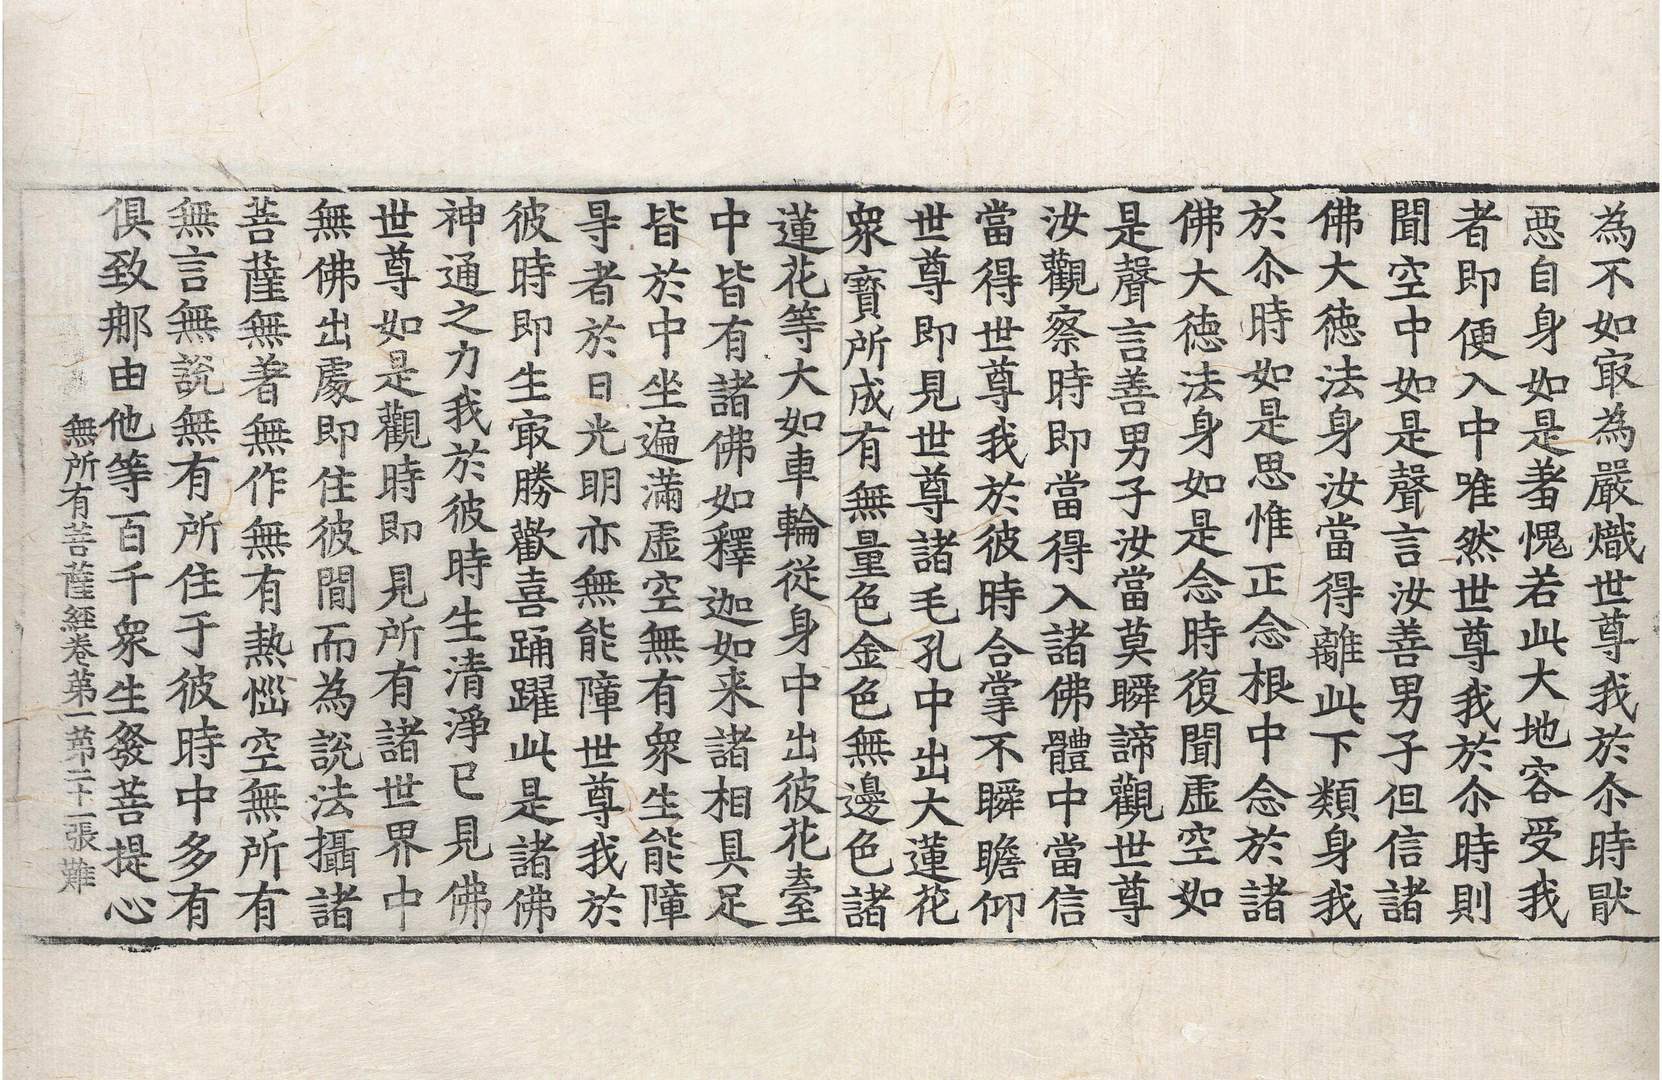 為不如㝡為嚴熾世尊我於尒時猒
惡自身如是羞愧若此大地容受我
者即便入中唯然世尊我於尒時則
聞空中如是聲言汝善男子但信諸
佛大徳法身汝當得離此下類身我
於尒時如是思惟正念根中念於諸
佛大徳法身如是念時復聞虛空如
是聲言善男子汝當莫瞬諦觀世尊
汝觀察時即當得入諸佛體中當信
當得世尊我於彼時合掌不瞬瞻仰
世尊即見世尊諸毛孔中出大蓮花
衆寶所成有無量色金色無邊色諸
蓮花等大如車輪從身中出彼花臺
中皆有諸佛如釋迦如来諸相具足
皆於中坐遍滿虛空無有衆生能障
㝵者於日光明亦無能障世尊我於
彼時即生㝡勝歡喜踊躍此是諸佛
神通之力我於彼時生清淨已見佛
世尊如是觀時即見所有諸世界中
無佛出處即住彼間而為說法攝諸
菩薩無著無作無有熱惱空無所有
無言無說無有所住于彼時中多有
俱致那由他等百千衆生發菩提心
無所有菩薩經卷第一第二十一張難